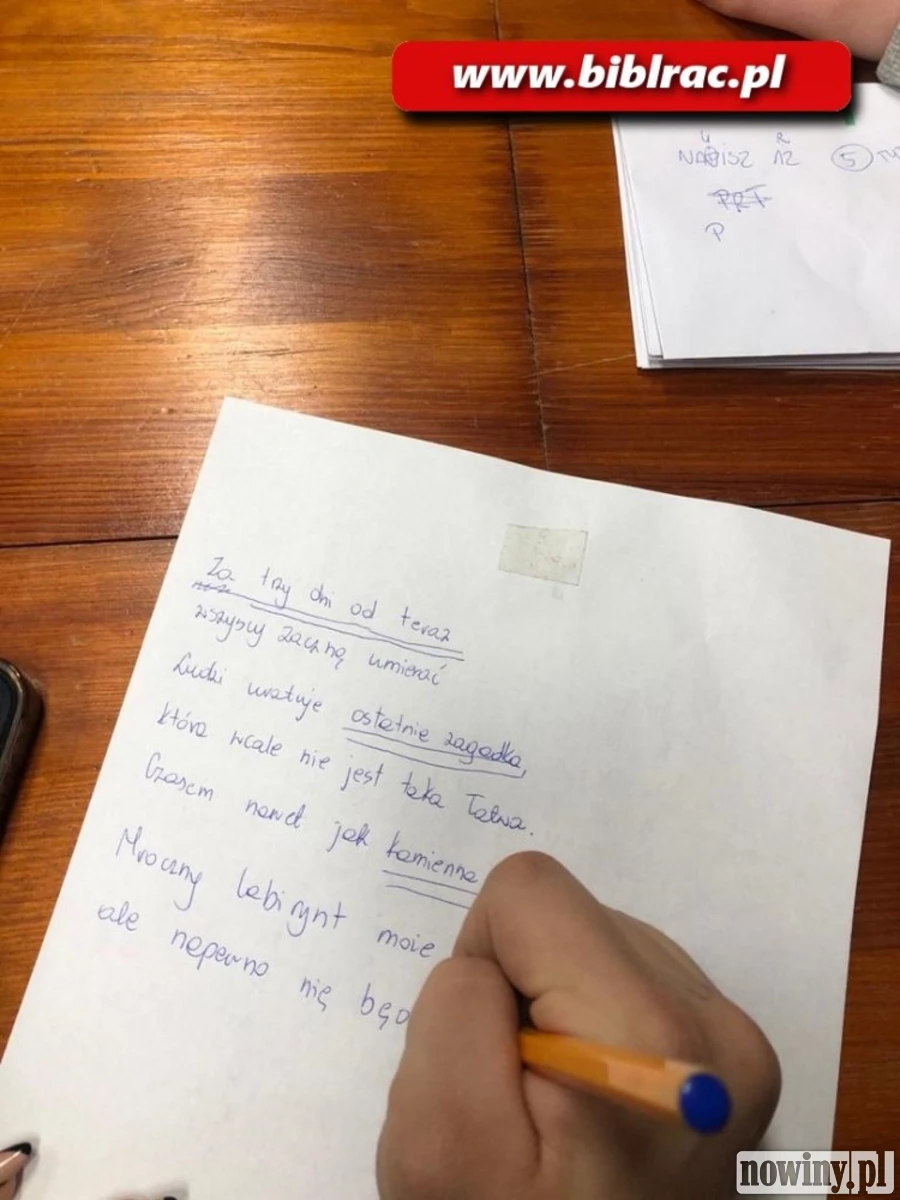 www.biblrac.pl
NAPISZ 12 5
P
Za trzy dni od teraz
wszyscy zaczną umierać
Ludzi uratuje ostatnie zagadka,
która wcale nie jest taka łatwa.
Czasem nawet jak kamienna
Mroczny labirynt moie
ale napewno nię będ
nowiny.pl